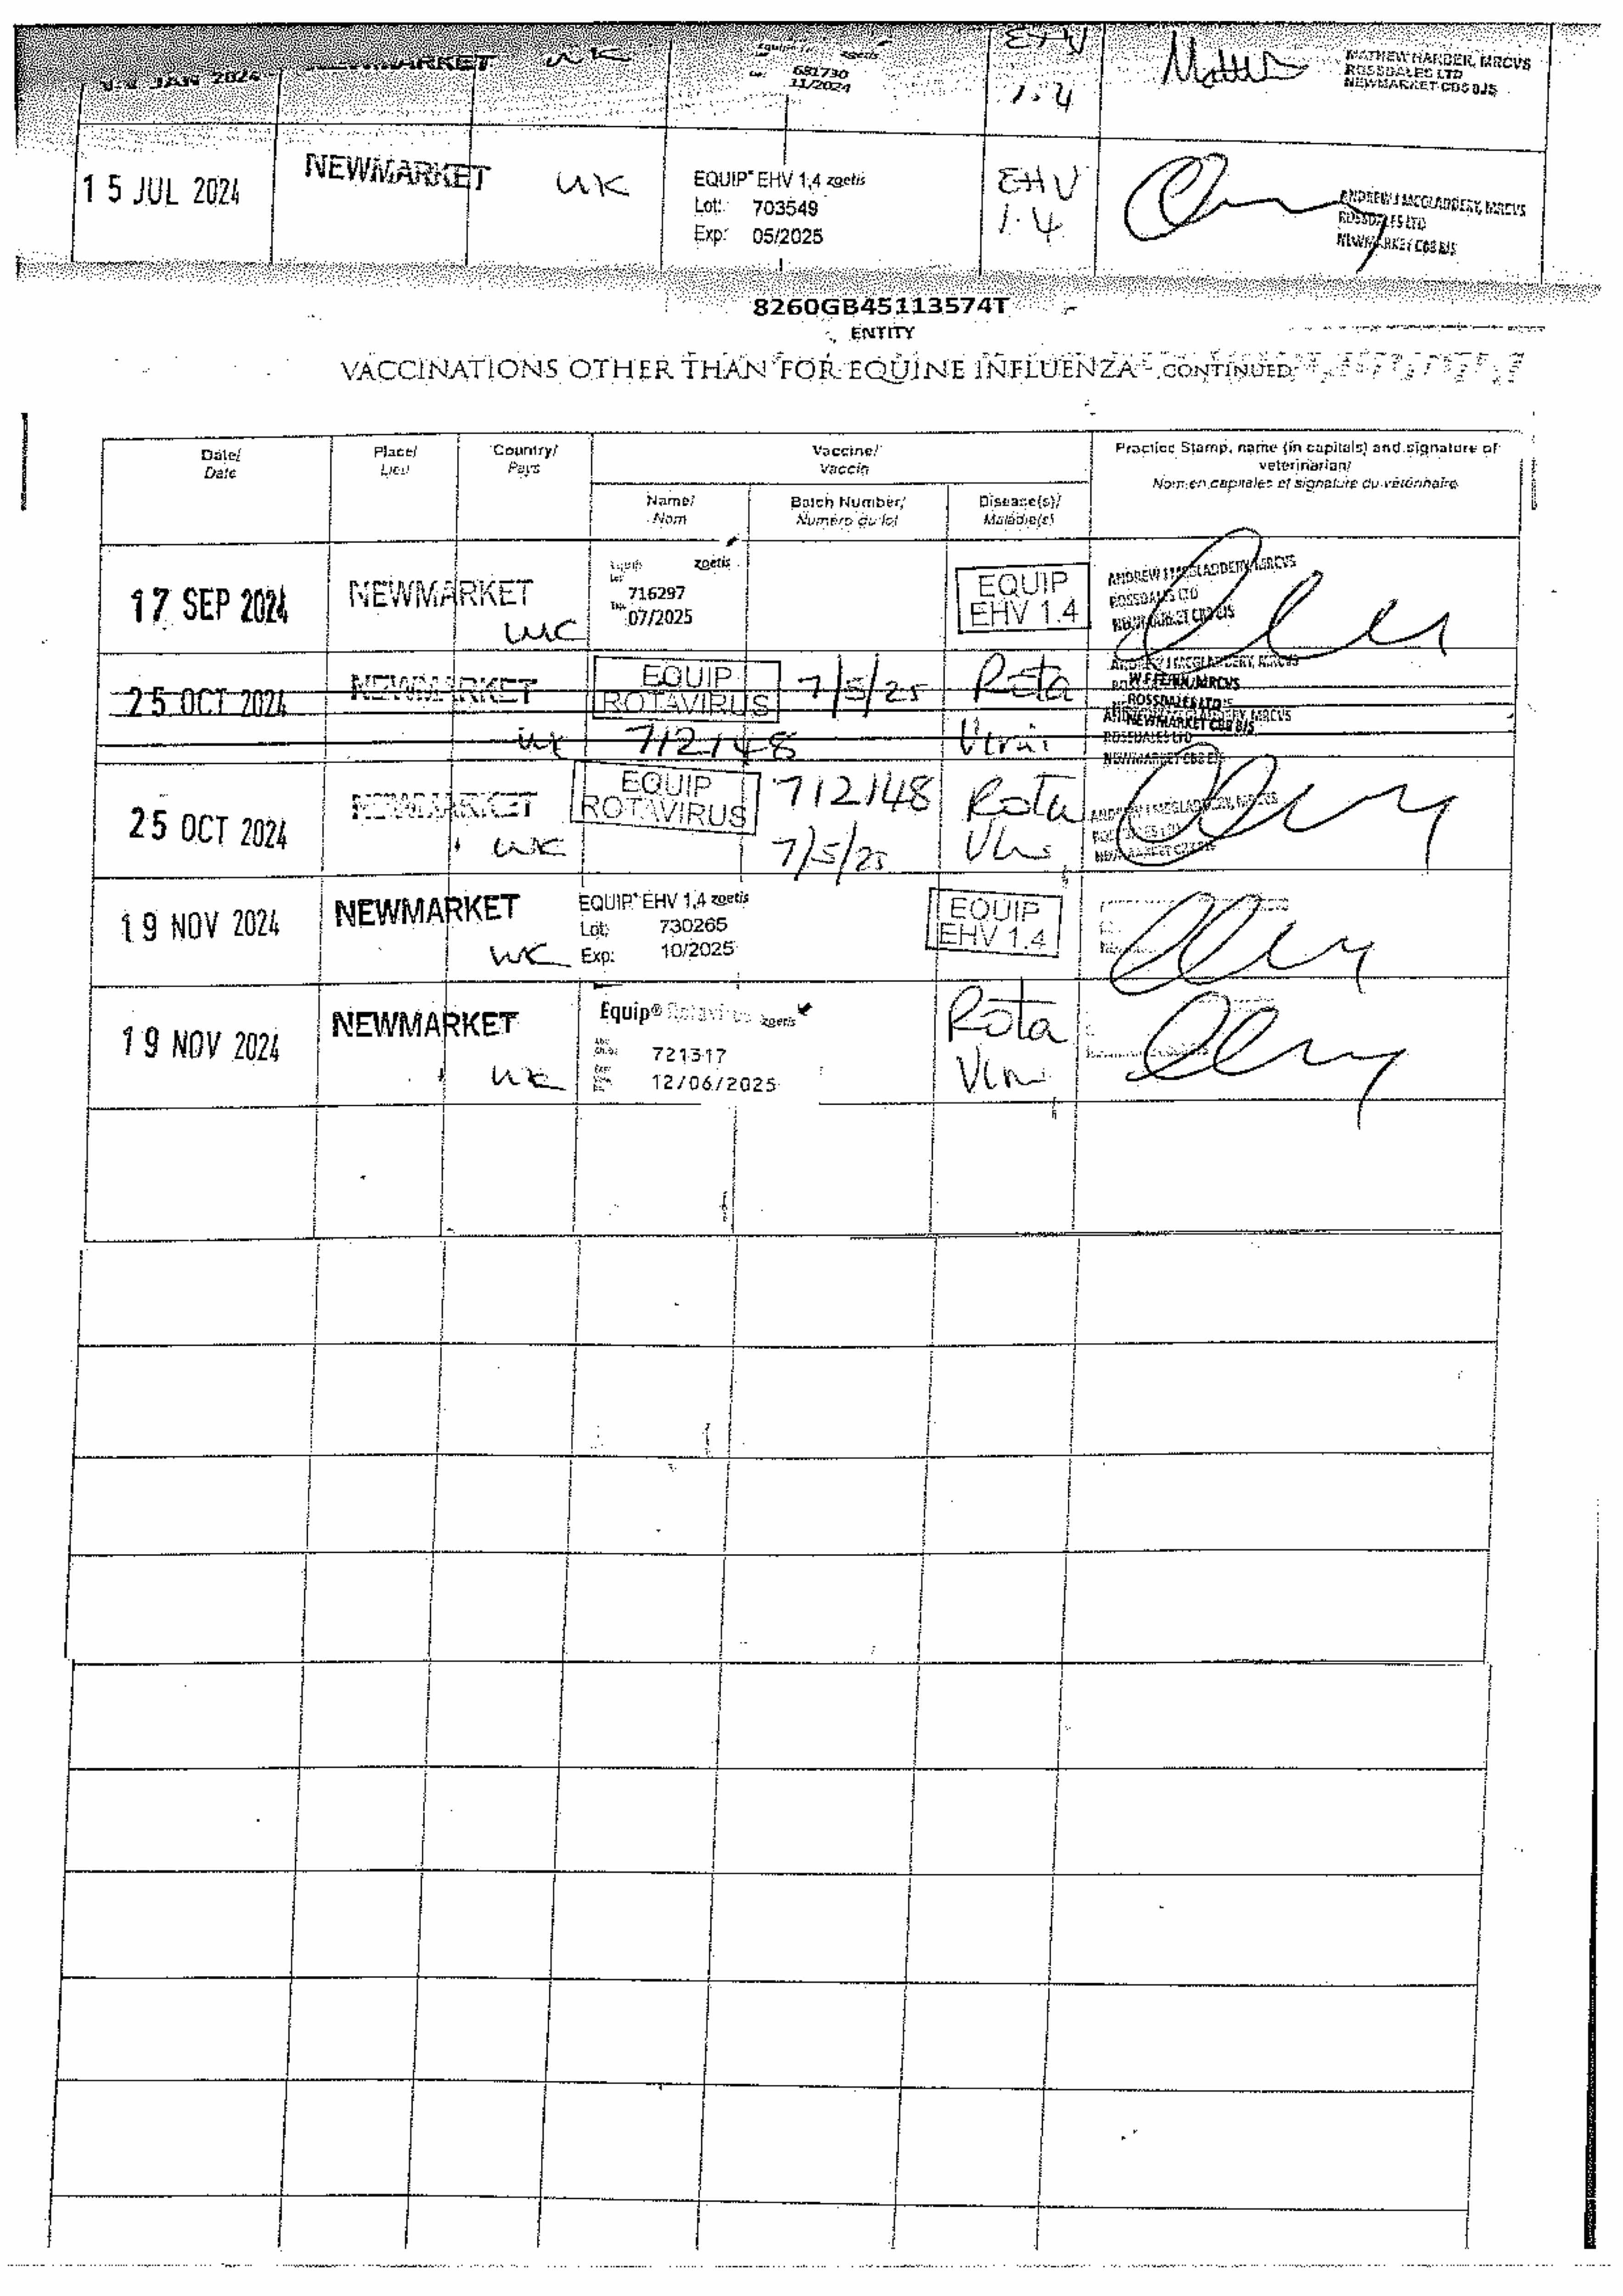 JAN 2024 NEWMARKET UK 681730 11/2024 EHV 1.4 MATHEW HARDER, MRCVS
ROSSDALES LTD
NEWMARKET CB8 8JS
15 JUL 2024 NEWMARKET UK EQUIP® EHV 1,4 zoetis EHV 1.4 ANDREW J MCGLADDERY, MRCVS
Lot: 703549 ROSSDALES LTD
Exp: 05/2025 NEWMARKET CB8 8JS
8260GB45113574T
ENTITY
VACCINATIONS OTHER THAN FOR EQUINE INFLUENZA - CONTINUED
Date/ Place/ Country/ Vaccine/ Practice Stamp, name (in capitals) and signature of
Date Lieu Pays Vaccin veterinarian/
Nom en capitales et signature du vétérinaire
Name/ Batch Number/ Disease(s)/
Nom Numéro du lot Maladie(s)
17 SEP 2024 NEWMARKET UK zoetis EQUIP ANDREW J MCGLADDERY, MRCVS
716297 EHV 1.4 ROSSDALES LTD
07/2025 NEWMARKET CB8 8JS
25 OCT 2024 NEWMARKET EQUIP ROTAVIRUS 7/5/25 Rota ANDREW J MCGLADDERY, MRCVS
W F FENN, MRCVS
ROSSDALES LTD
NEWMARKET CB8 8JS
UK 712148 Virus
ROSSDALES LTD
NEWMARKET CB8 8JS
25 OCT 2024 NEWMARKET EQUIP ROTAVIRUS 712148 Rota ANDREW J MCGLADDERY, MRCVS
UK 7/5/25 Virus ROSSDALES LTD
NEWMARKET CB8 8JS
19 NOV 2024 NEWMARKET EQUIP® EHV 1,4 zoetis EQUIP
Lot: 730265 EHV 1.4
UK Exp: 10/2025
19 NOV 2024 NEWMARKET Equip® Rotavirus zoetis Rota
721317
UK 12/06/2025 Virus